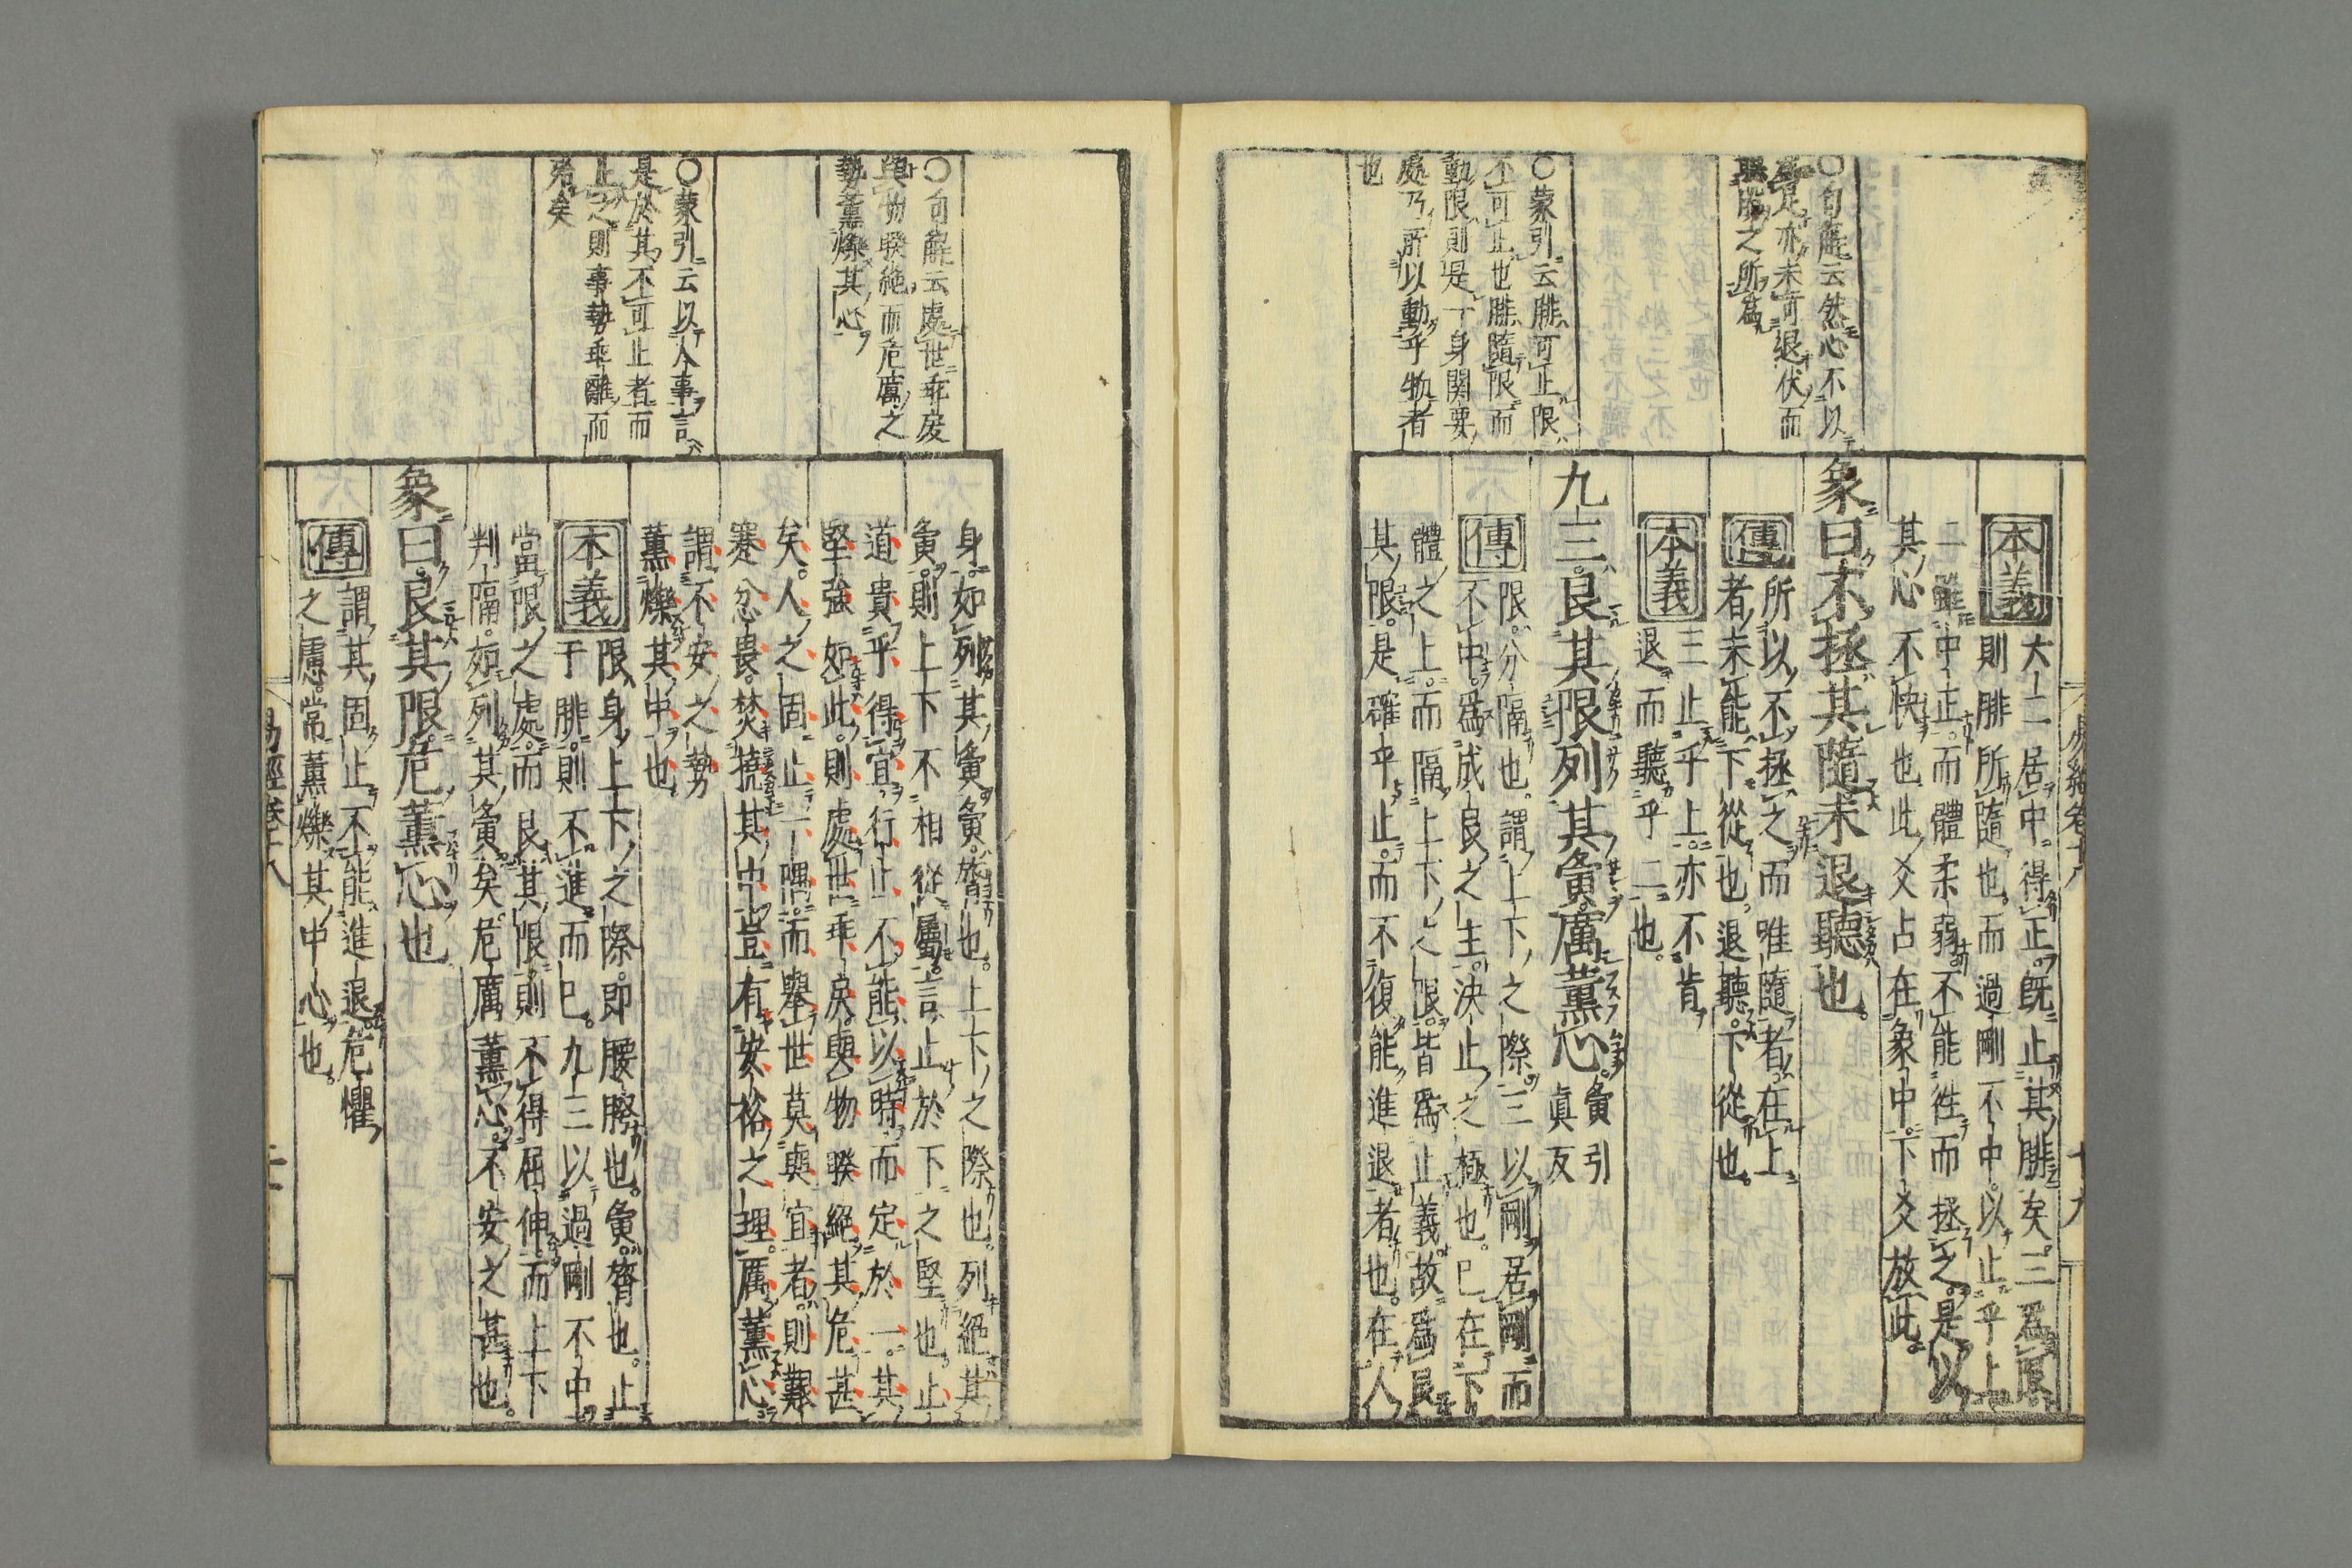 〇句解云然心不以
爲是亦未肯退伏而
聽之所爲
〇蒙引云腓可止限
不可止也腓隨限而
動限則是一身關要
處乃所以動乎物者
也
本義
六二居中得正既止其腓矣三爲限
則腓所隨也而過剛不中以止乎上
二雖中正而體柔弱不能徃而拯之是以
其心不快也此爻占在象中下爻放此
象曰不拯其隨未退聽也
傳
所以不拯之而唯隨者在上
者未能下從也退聽下從也
本義
三止乎上亦不肯
退而聽乎二也
九三艮其限列其夤厲薰心
夤引
眞反
傳
限分隔也謂上下之際三以剛居剛而
不中爲成艮之主決止之極也巳在下
體之上而隔上下之限皆爲止義故爲艮
其限是確乎止而不復能進退者也在人
十九
〇句解云處世乖戾
與物暌絶而危厲之
勢薰爍其心
〇蒙引云以人事言
是於其不可止者而
止之則事勢乖離而
身如列其夤夤膂也上下之際也列絶其
夤則上下不相從屬言止於下之堅也止
道貴乎得宜行止不能以時而定於一其
堅強如此則處世乖戾與物暌絶其危甚
矣人之固止一隅而舉世莫與宜者則艱
蹇忿畏焚撓其中豈有安裕之理厲薰心
謂不安之勢
薰爍其中也
本義
限身上下之際即腰胯也夤膂也止
于腓則不進而巳九三以過剛不中
當限之處而艮其限則不得屈伸而上下
判隔如列其夤矣危厲薰心不安之甚也
象曰艮其限危薰心也
傳
謂其固止不能進退危懼
之慮常薰爍其中心也
易經卷十八